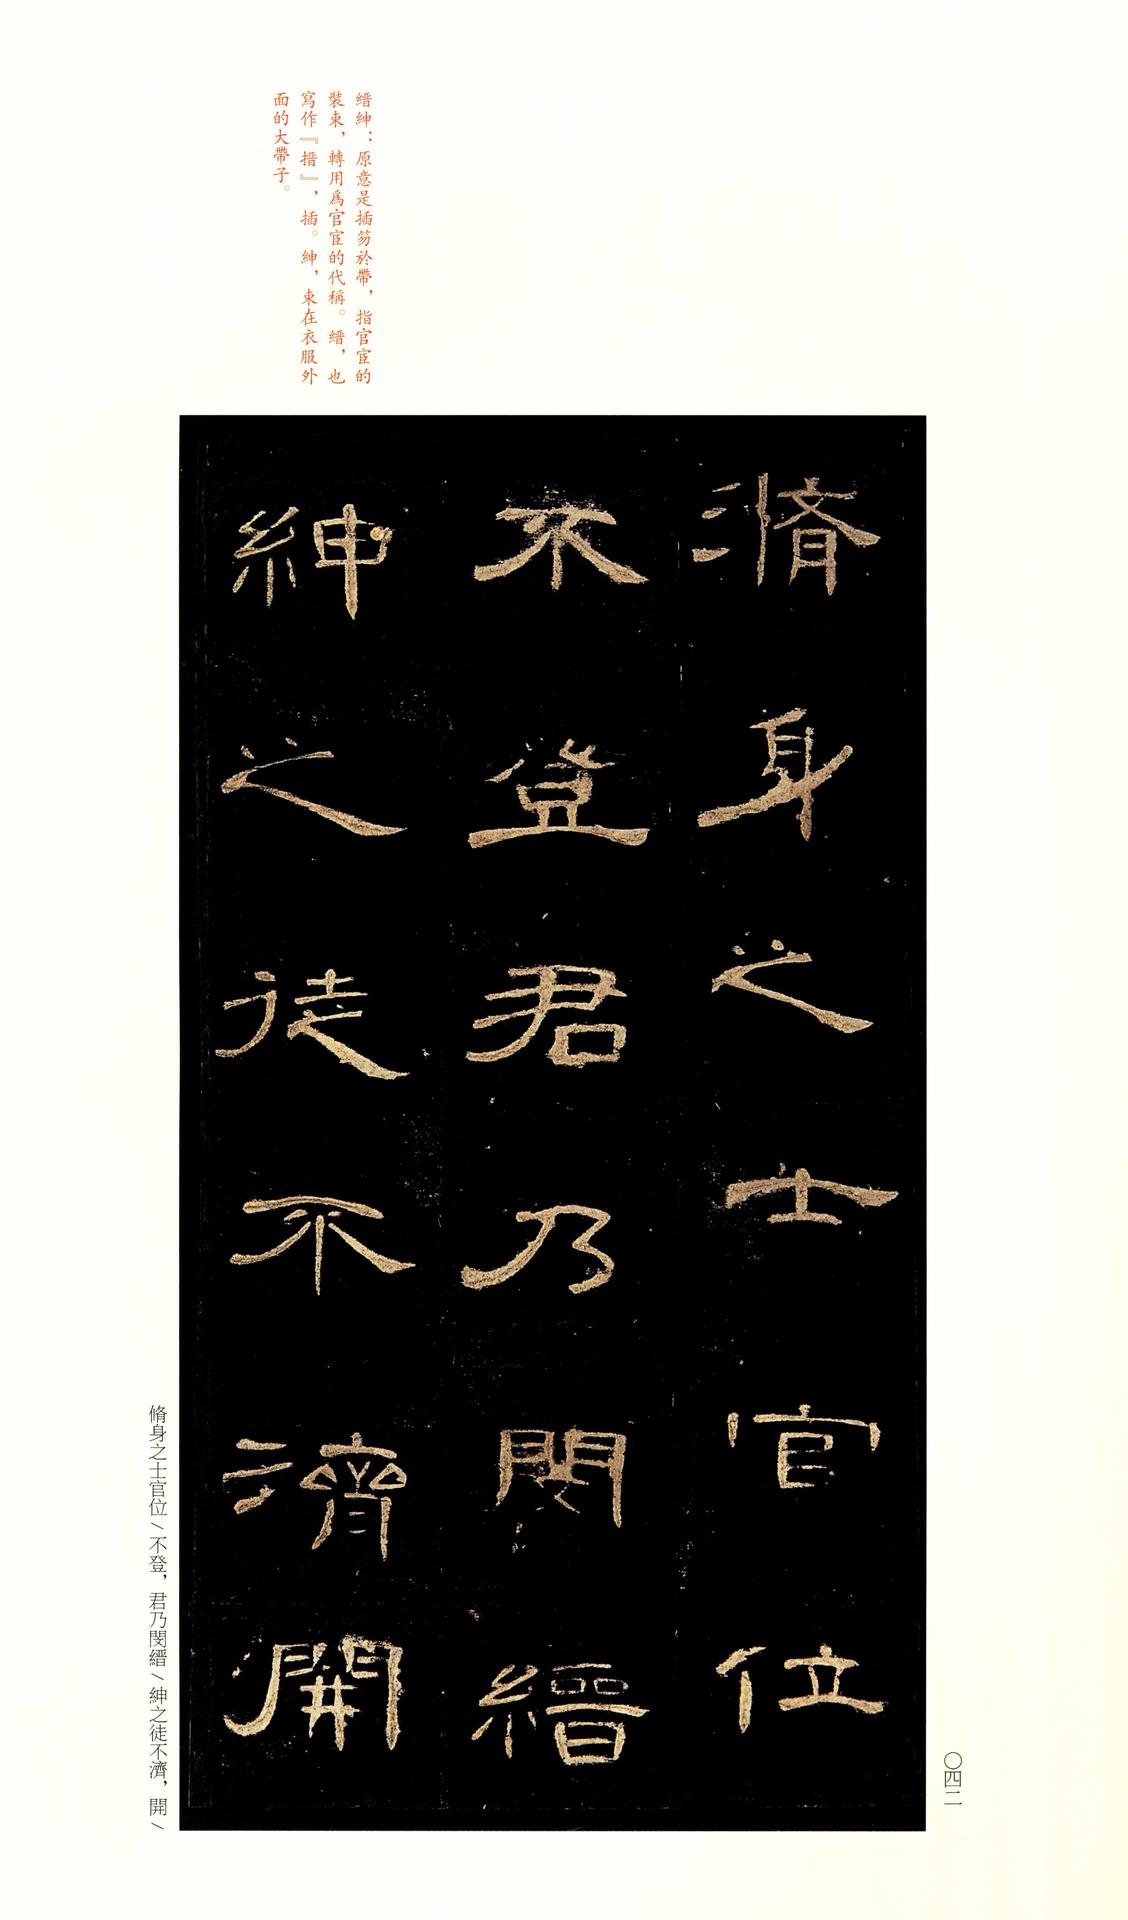 縉紳：原意是插笏於帶，指官宦的
裝束，轉用爲官宦的代稱。縉，也
寫作『搢』，插。紳，束在衣服外
面的大帶子。
脩身之士官位
不登君乃閔縉
紳之徒不濟開
脩身之士官位\不登，君乃閔縉\紳之徒不濟，開\
〇四二